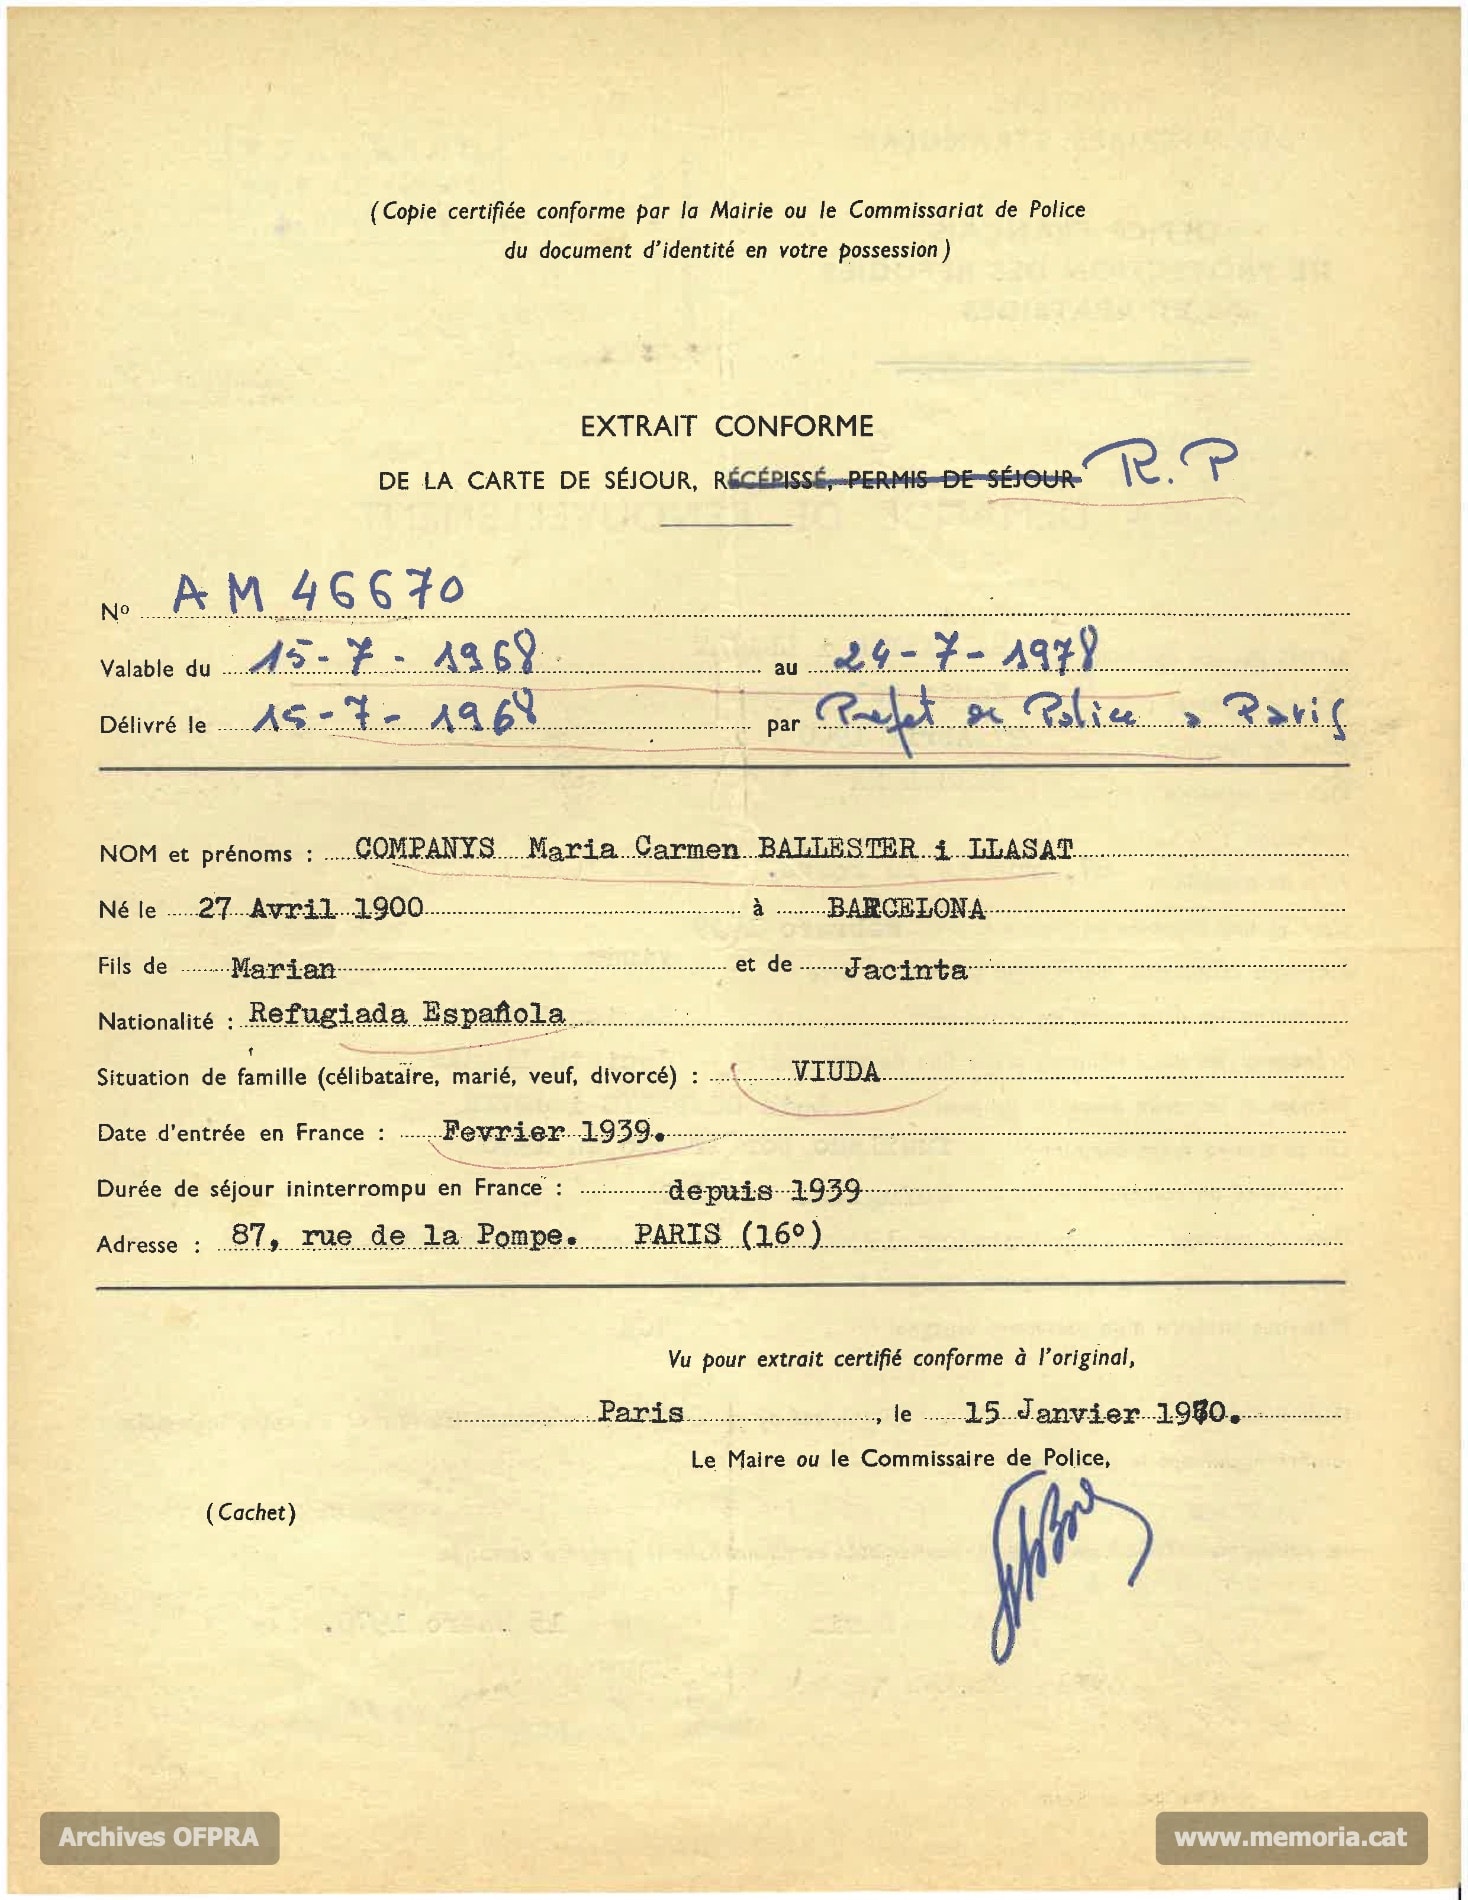 (Copie certifiée conforme par la Mairie ou le Commissariat de Police
du document d'identité en votre possession)
EXTRAIT CONFORME
DE LA CARTE DE SÉJOUR, RÉCÉPISSÉ, PERMIS DE SÉJOUR R.P
Nº AM 46670
Valable du 15-7-1968 au 24-7-1978
Délivré le 15-7-1968 par Prefet de Police a Paris
NOM et prénoms : COMPANYS Maria Carmen BALLESTER i LLASAT
Né le 27 Avril 1900 à BARCELONA
Fils de Marian et de Jacinta
Nationalité : Refugiada Española
Situation de famille (célibataire, marié, veuf, divorcé) : VIUDA
Date d'entrée en France : Fevrier 1939.
Durée de séjour ininterrompu en France : depuis 1939
Adresse : 87, rue de la Pompe. PARIS (16º)
Vu pour extrait certifié conforme à l'original,
Paris, le 15 Janvier 1970.
Le Maire ou le Commissaire de Police,
(Cachet)
Archives OFPRA
www.memoria.cat